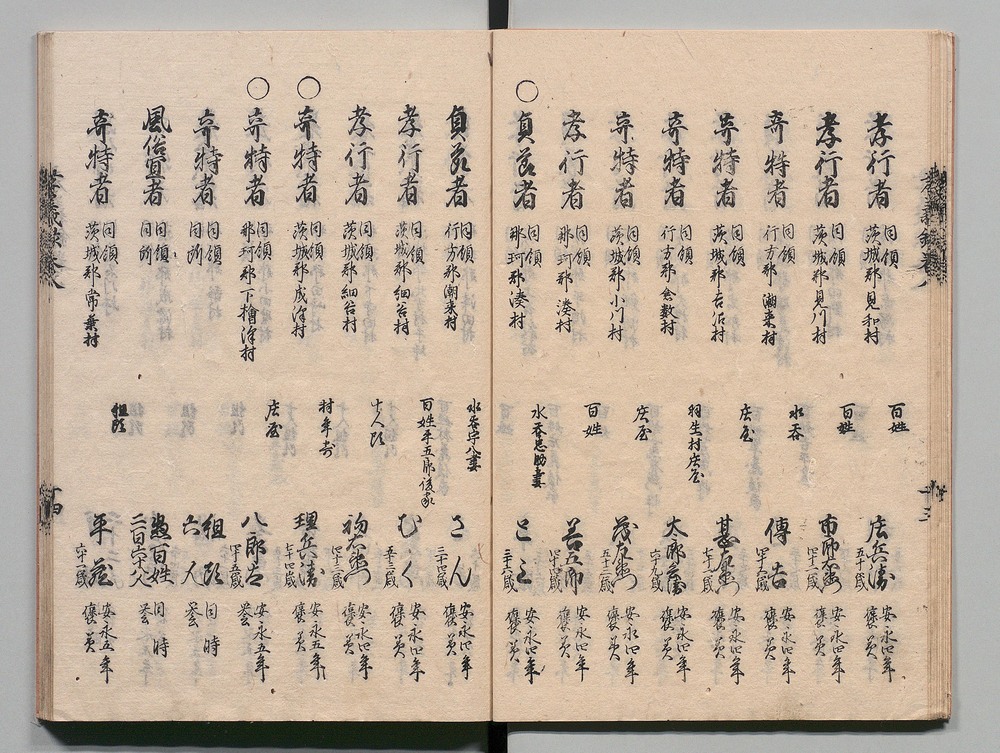 孝行者 同領茨城郡見和村 百姓 庄兵衛 五十歳 安永四年褒美
孝行者 同領茨城郡見川村 百姓 安永四年褒美
奇特者 同領行方郡潮来村 水呑 傳吉 安永四年褒美
奇特者 同領茨城郡 庄屋 安永四年褒美
奇特者 同領行方郡倉数村 羽生村庄屋 安永四年褒美
奇特者 同領茨城郡小川村 庄屋 茂左衛門 五十二歳 安永四年褒美
孝行者 同領那珂郡湊村 百姓 善五郎 安永四年褒美
○
貞節者 同領那珂郡湊村 水呑忠助妻 とミ 三十六歳 安永四年褒美
貞節者 同領行方郡潮来村 水呑宇八妻 さん 三十四歳 安永四年褒美
孝行者 同領茨城郡細谷村 百姓平五郎後家 安永四年褒美
孝行者 同領茨城郡細谷村 十人頭 安永四年褒美
○
奇特者 同領茨城郡成沢村 村年寄 理兵衛 七十四歳 安永五年褒美
○
奇特者 同領那珂郡下檜沢村 庄屋 八郎 安永五年誉
奇特者 同領同所 組頭六人 同時誉
風俗宜者 同領同所 惣百姓二百六十八人 同時誉
奇特者 同領茨城郡常葉村 組頭 平蔵 六十一歳 安永五年褒美
孝義録 巻八
十三
十四